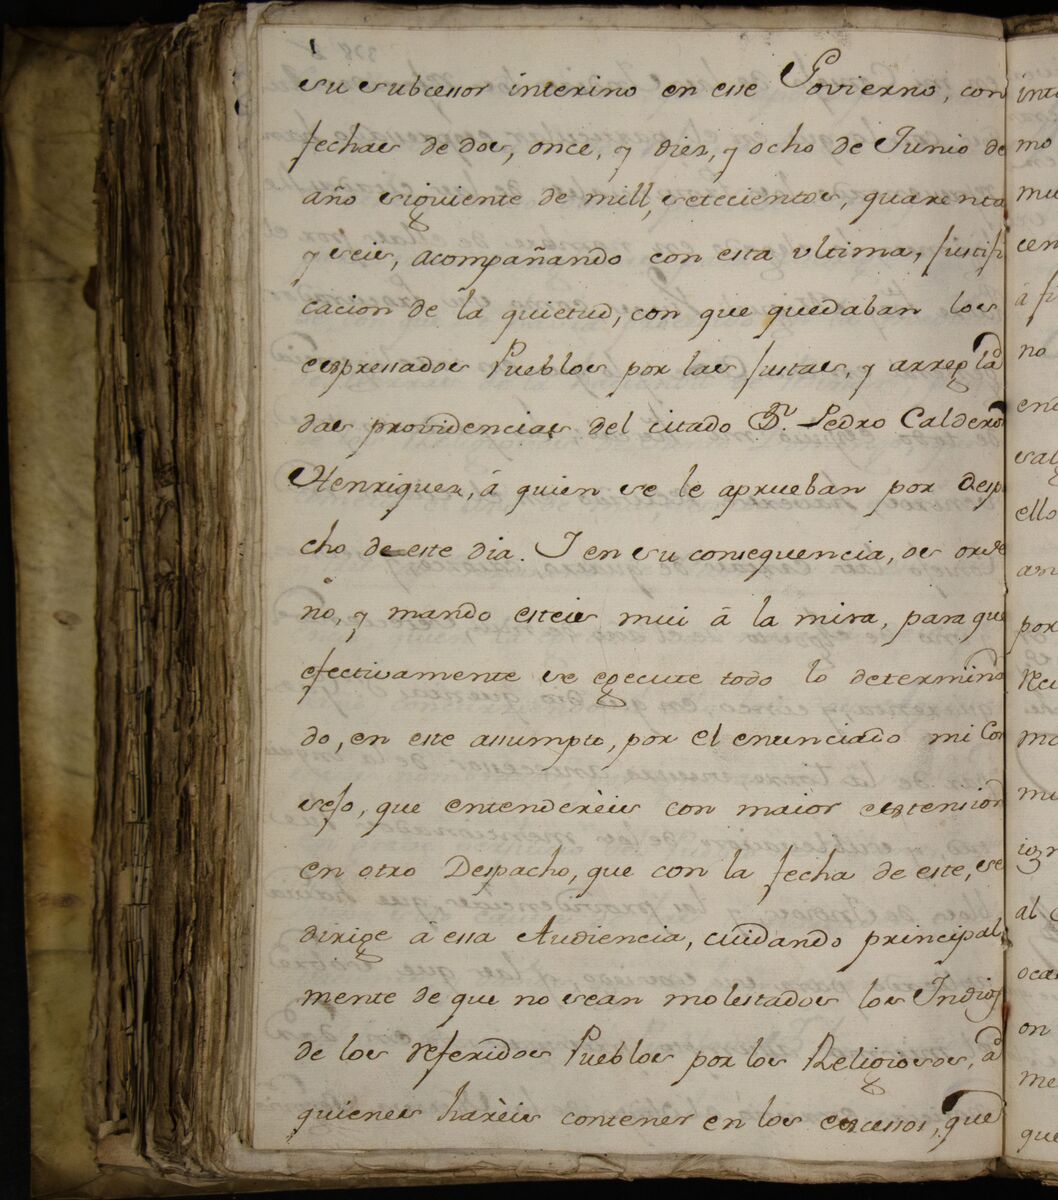 su subcessor interino en ese Govierno, con
fechas de dos, once, y diez, y ocho de Junio de
año siguiente de mill, setecientos, quarenta
y seis, acompañando con esta ultima, justifi
cacion de la quietud, con que quedaban los
expressados Pueblos por las justas, y arregla
das providencias del citado Dn. Pedro Calderon
Henriquez, á quien se le aprueban por despa
cho de este dia. I en su consequencia, os orde
no, y mando esteis mui â la mira, para que
efectivamente se egecute todo lo determina
do, en este assumpto, por el enunciado mi Con
sejo, que entenderèis con maior extension
en otro Despacho, que con la fecha de este, se
dirige â essa Audiencia, cuidando principal
mente de que no sean molestados los Indios
de los referidos Pueblos por los Religiosos, â
quienes harèis contener en los excessos, que
int
mo
mu
cen
á fi
no
enc
ello
por
Reci
mo
mu
al
oca
on
me
que